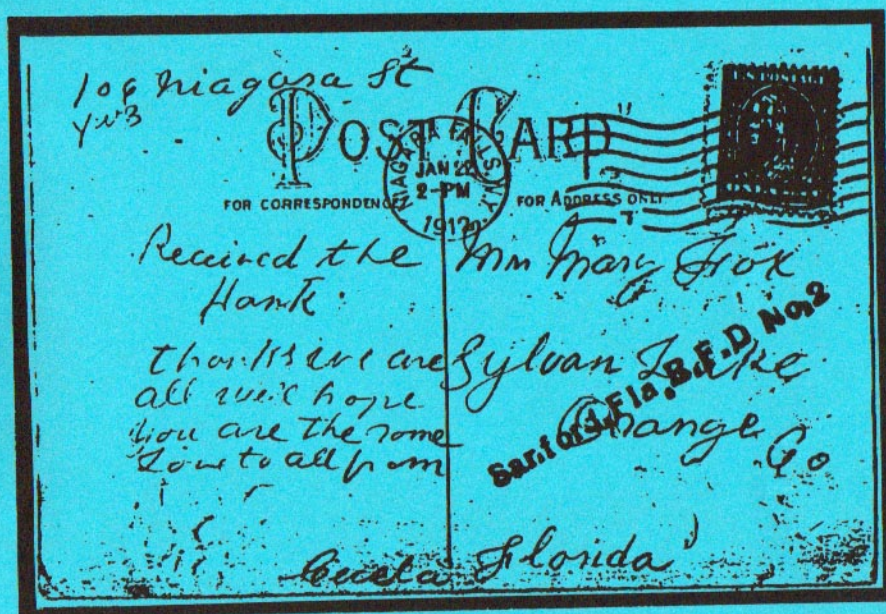 106 Niagara St
POST CARD
NIAGARA FALLS, N.Y.
JAN 22
2-PM
1912
U.S. POSTAGE
FOR CORRESPONDENCE
FOR ADDRESS ONLY
Received the
Hank.
thanks we are
all well hope
you are the same
Love to all from
Mary Fox
Sylvan Lake
Orange Co
Florida
Sanford, Fla. R.F.D No. 2